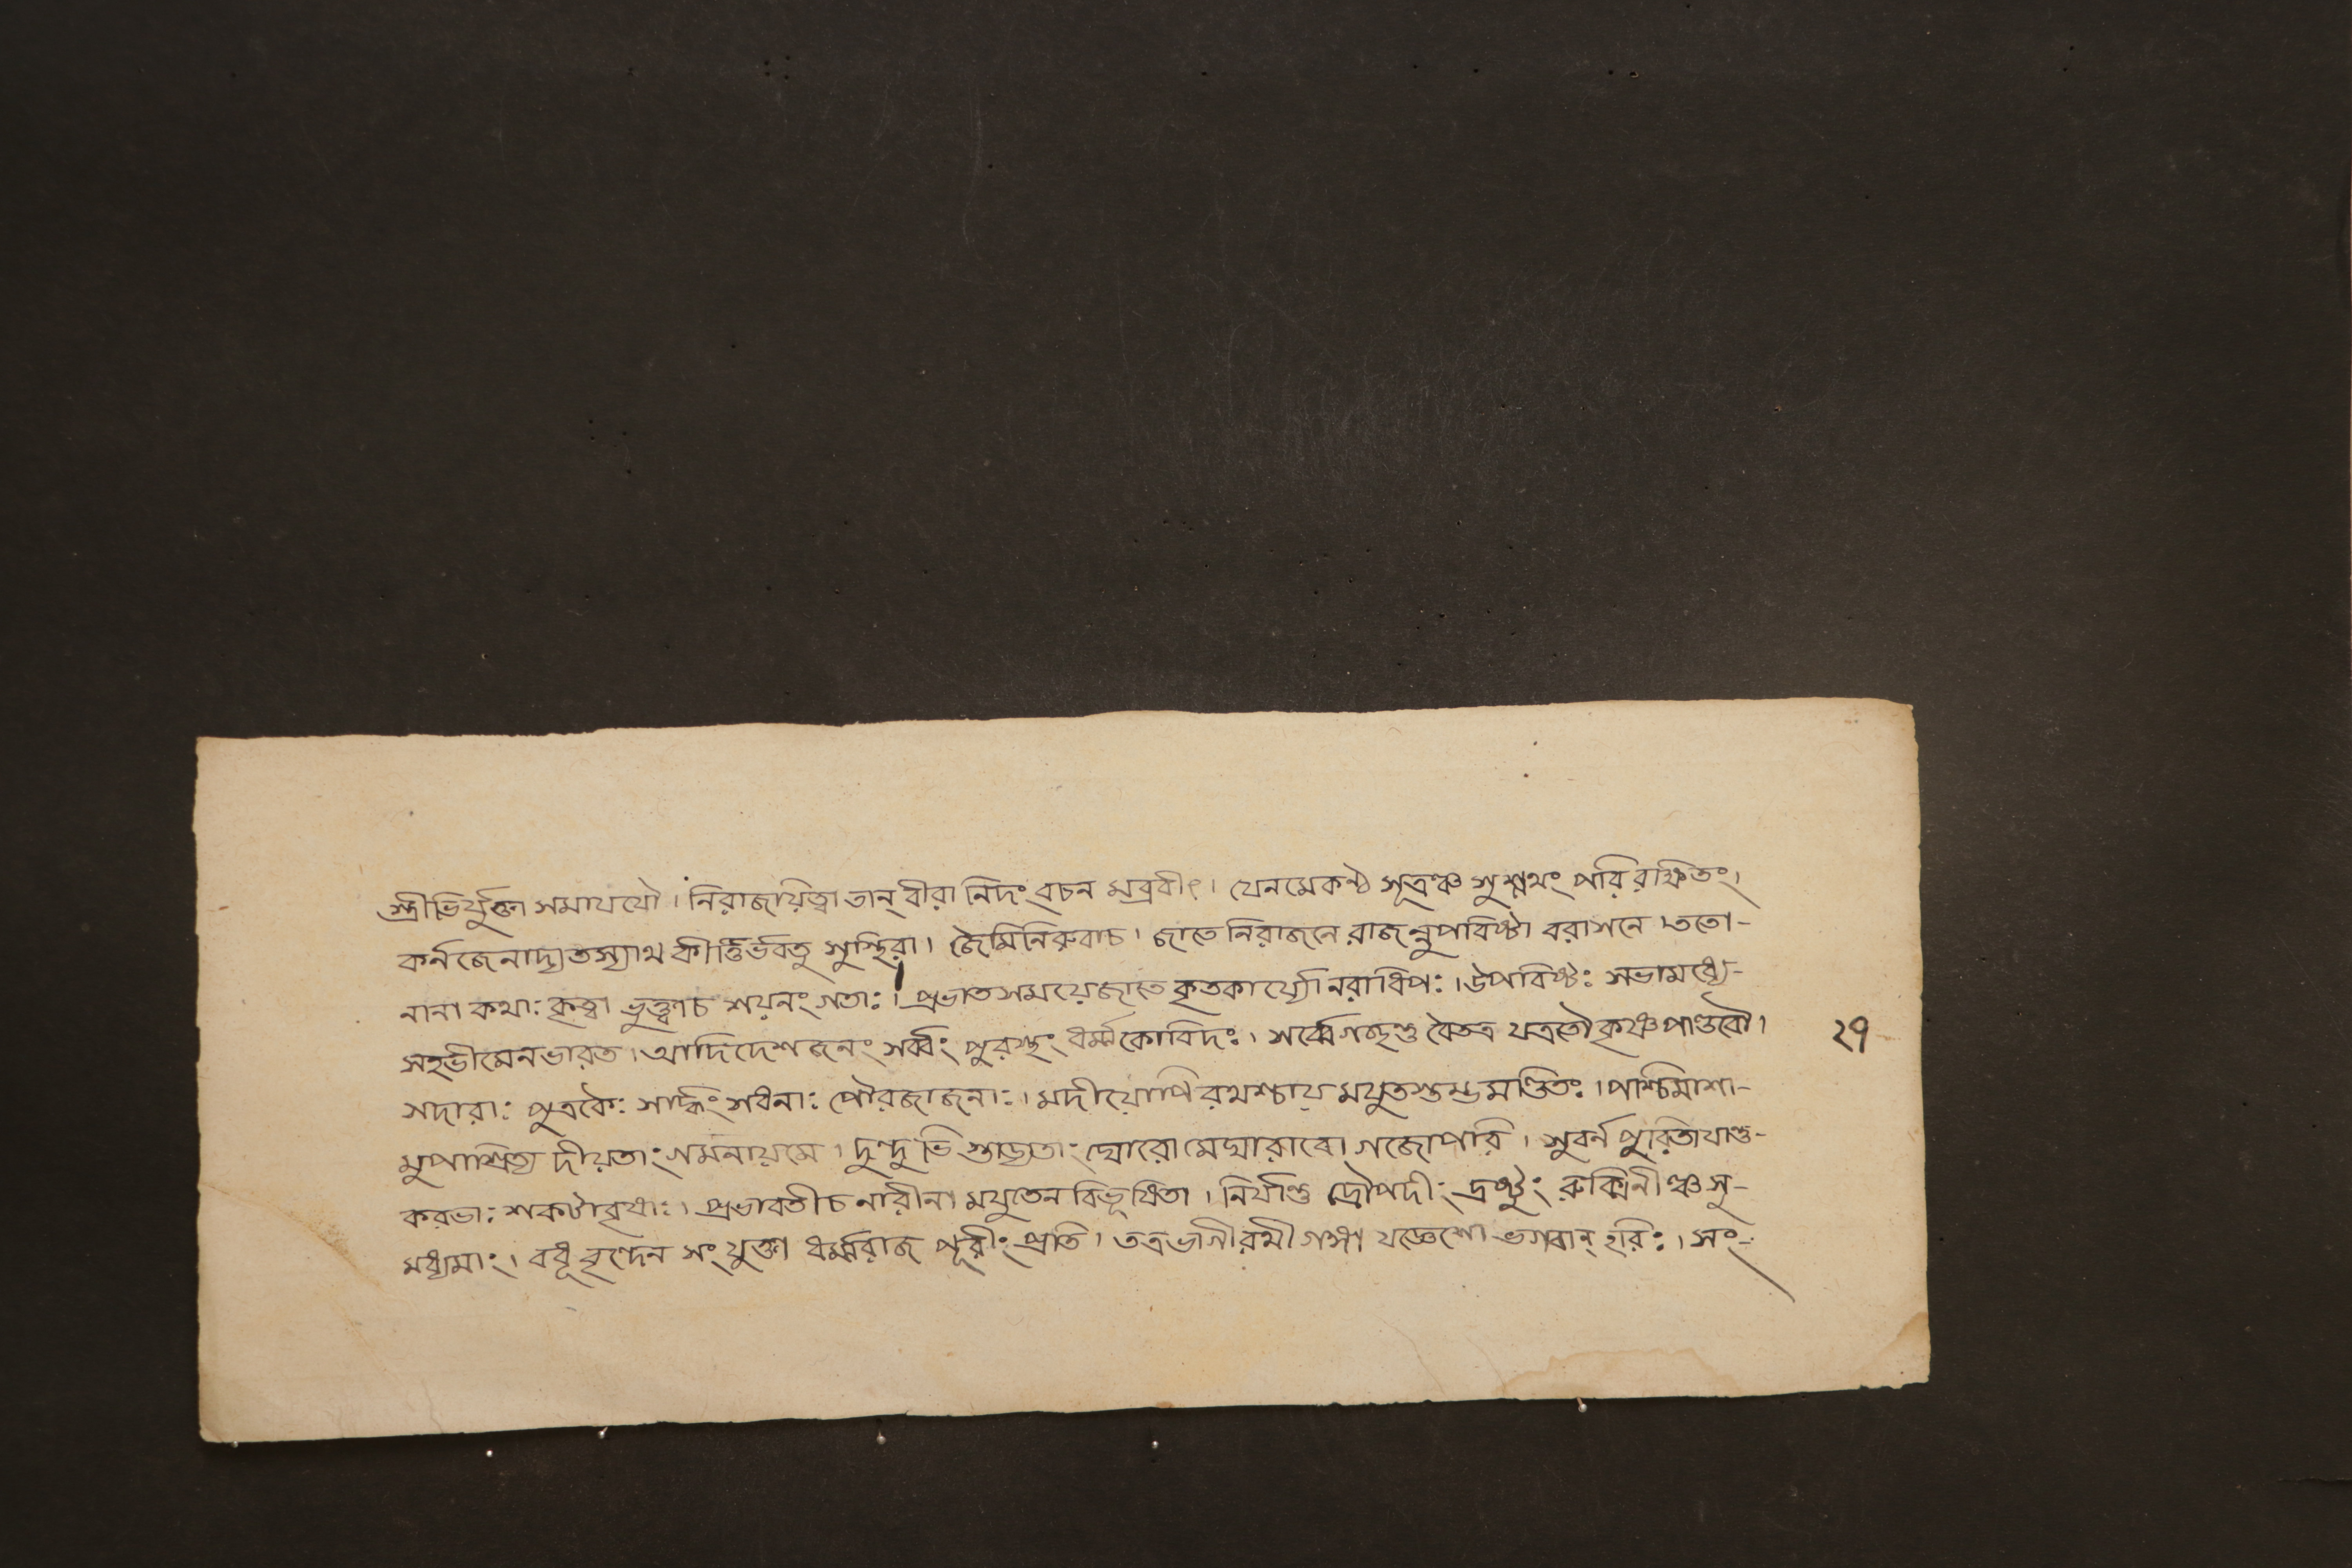 স্ত্রীভির্যুক্তা সমাযযৌ। নিরাজায়িত্বা তান্ বীরা নিদং বচন মব্রবীৎ। যেনমেকণ্ঠ সূত্রঞ্চ সুশ্লথং পরি রক্ষিতং।
কর্নজেনাদ্য তস্যাথ কীর্ত্তির্ভবতু সুস্থিরা। জৈমিনিরুবাচ। জাতে নিরাজনে রাজন্নুপবিষ্টা বরাসনে। ততো-
নানা কথাঃ কৃত্বা ভুক্ত্বাচ শয়নং গতাঃ। প্রভাত সময়েজাতে কৃতকার্য্যো নরাধিপঃ। উপবিষ্টঃ সভামধ্যে-
সহভীমেনভারত। আদিদেশ জনং সর্ব্বং পুরস্থং ধর্ম্মকোবিদঃ। সর্ব্বেগচ্ছন্তু বৈতত্র যত্রতৌ কৃষ্ণ পাণ্ডবৌ।
সদারাঃ পুত্রকৈঃ সার্দ্ধং সধনাঃ পৌরজাজনাঃ। মদীয়োপি রথশ্চায় মযুতস্তম্ভ মণ্ডিতঃ। পশ্চিমাশা-
মুপাশ্রিত্য দীয়তাং গমনায়মে। দুন্দুভি স্তাড্যতাং ঘোরো মেঘারাবো গজোপরি। সুবর্ন পুরিতাযান্তু-
করভাঃ শকটাবৃষাঃ। প্রভাবতীচ নারীনা মযুতেন বিভূষিতা। নির্যাতু দ্রৌপদীং দ্রষ্টুং রুক্মিনীঞ্চ সু-
মধ্যমাং। বধূ বৃন্দেন সংযুক্তা ধর্ম্মরাজ পূরীং প্রতি। তত্রভাগীরথী গঙ্গা যজ্ঞেশো ভগবান্ হরিঃ। সং-
২৭